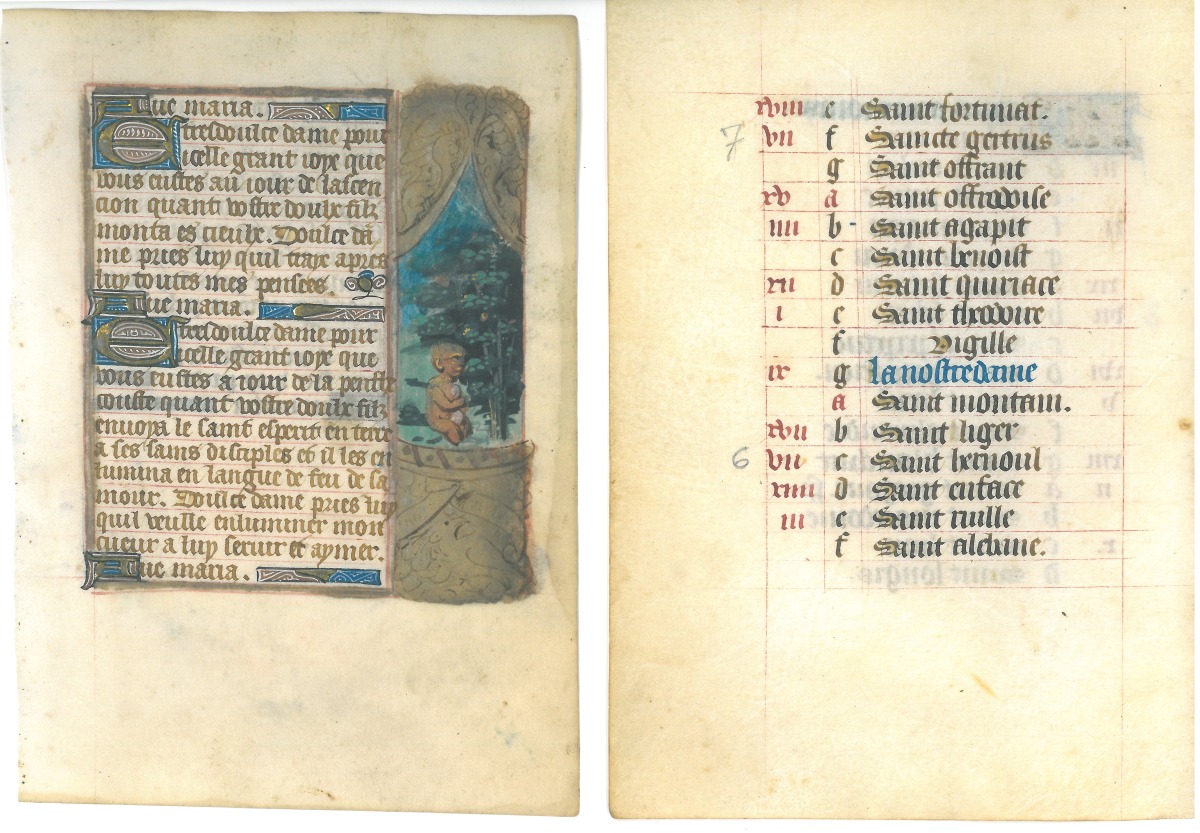 Aue maria.
O tresdoulce dame pour
icelle grant ioye que
vous eustes au iour de lascen
cion quant vostre doulx filz
monta es cieulx. Doulce da
me pries luy quil traye apres
luy toutes mes pensees.
Aue maria.
O tresdoulce dame pour
icelle grant ioye que
vous eustes a iour de la penthe
couste quant vostre doulx filz
enuoya le saint esperit en terre
a ses sains disciples et il les en
lumina en langue de feu de sa
mour. Doulce dame pries luy
quil veulle enluminer mon
cueur a luy seruir et aymer.
Aue maria.
xviii e Saint fortunat.
7 vii f Saincte gertrus
g Saint offrant
xv a Saint offradoise
iiii b Saint agapit
c Saint benoist
xii d Saint quiriace
i e Saint theodoire
f Vigille
ix g la nostre dame
a Saint montain.
xvii b Saint liger
6 vii c Saint bernoul
xiiii d Saint eusace
iii e Saint rulle
f Saint albine.